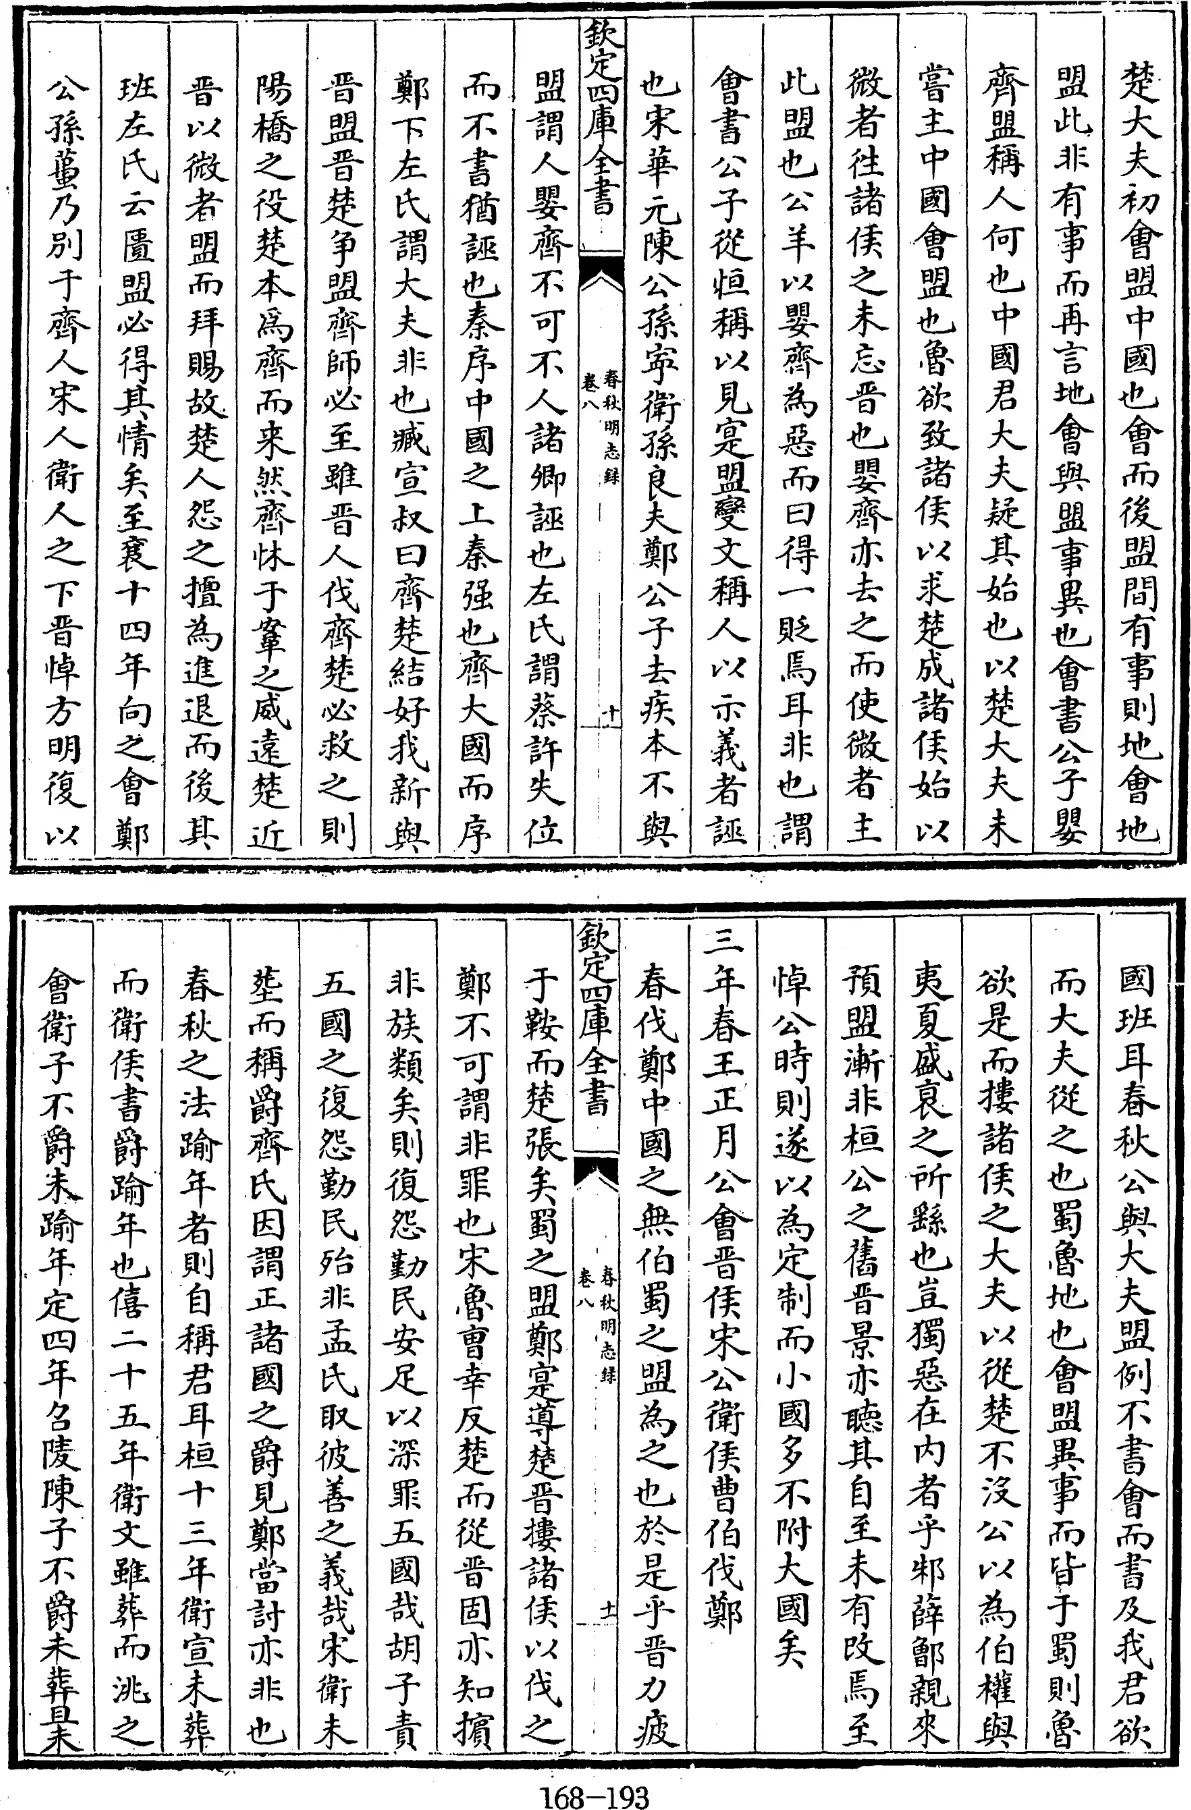 楚大夫初會盟中國也會而後盟間有事則地會地
盟此非有事而再言地會與盟事異也會書公子嬰
齊盟稱人何也中國君大夫疑其始也以楚大夫未
嘗主中國會盟也魯欲致諸侯以求楚成諸侯始以
微者徃諸侯之未忘晋也嬰齊亦去之而使微者主
此盟也公羊以嬰齊為惡而曰得一貶焉耳非也謂
會書公子從恒稱以見寔盟變文稱人以示義者誣
也宋華元陳公孫寜衛孫良夫鄭公子去疾本不與
欽定四庫全書
春秋明志録
卷八
十
盟謂人嬰齊不可不人諸卿誣也左氏謂蔡許失位
而不書猶誣也秦序中國之上秦强也齊大國而序
鄭下左氏謂大夫非也臧宣叔曰齊楚結好我新與
晋盟晋楚争盟齊師必至雖晋人伐齊楚必救之則
陽橋之役楚本爲齊而来然齊怵于鞌之威遠楚近
晋以微者盟而拜賜故楚人怨之擅為進退而後其
班左氏云匱盟必得其情矣至襄十四年向之會鄭
公孫蠆乃別于齊人宋人衛人之下晋悼方明復以
國班耳春秋公與大夫盟例不書會而書及我君欲
而大夫從之也蜀魯地也會盟異事而皆于蜀則魯
欲是而摟諸侯之大夫以從楚不沒公以為伯權與
夷夏盛衰之所繇也豈獨惡在内者乎邾薛鄫親來
預盟漸非桓公之舊晋景亦聽其自至未有改焉至
悼公時則遂以為定制而小國多不附大國矣
三年春王正月公會晋侯宋公衛侯曹伯伐鄭
春伐鄭中國之無伯蜀之盟為之也於是乎晋力疲
欽定四庫全書
春秋明志録
卷八
十一
于鞍而楚張矣蜀之盟鄭寔導楚晋摟諸侯以伐之
鄭不可謂非罪也宋魯曹幸反楚而從晋固亦知擯
非族類矣則復怨勤民安足以深罪五國哉胡子責
五國之復怨勤民殆非孟氏取彼善之義哉宋衛未
塟而稱爵齊氏因謂正諸國之爵見鄭當討亦非也
春秋之法踰年者則自稱君耳桓十三年衛宣未葬
而衛侯書爵踰年也僖二十五年衛文雖葬而洮之
會衛子不爵未踰年定四年召陵陳子不爵未葬且未
168-193